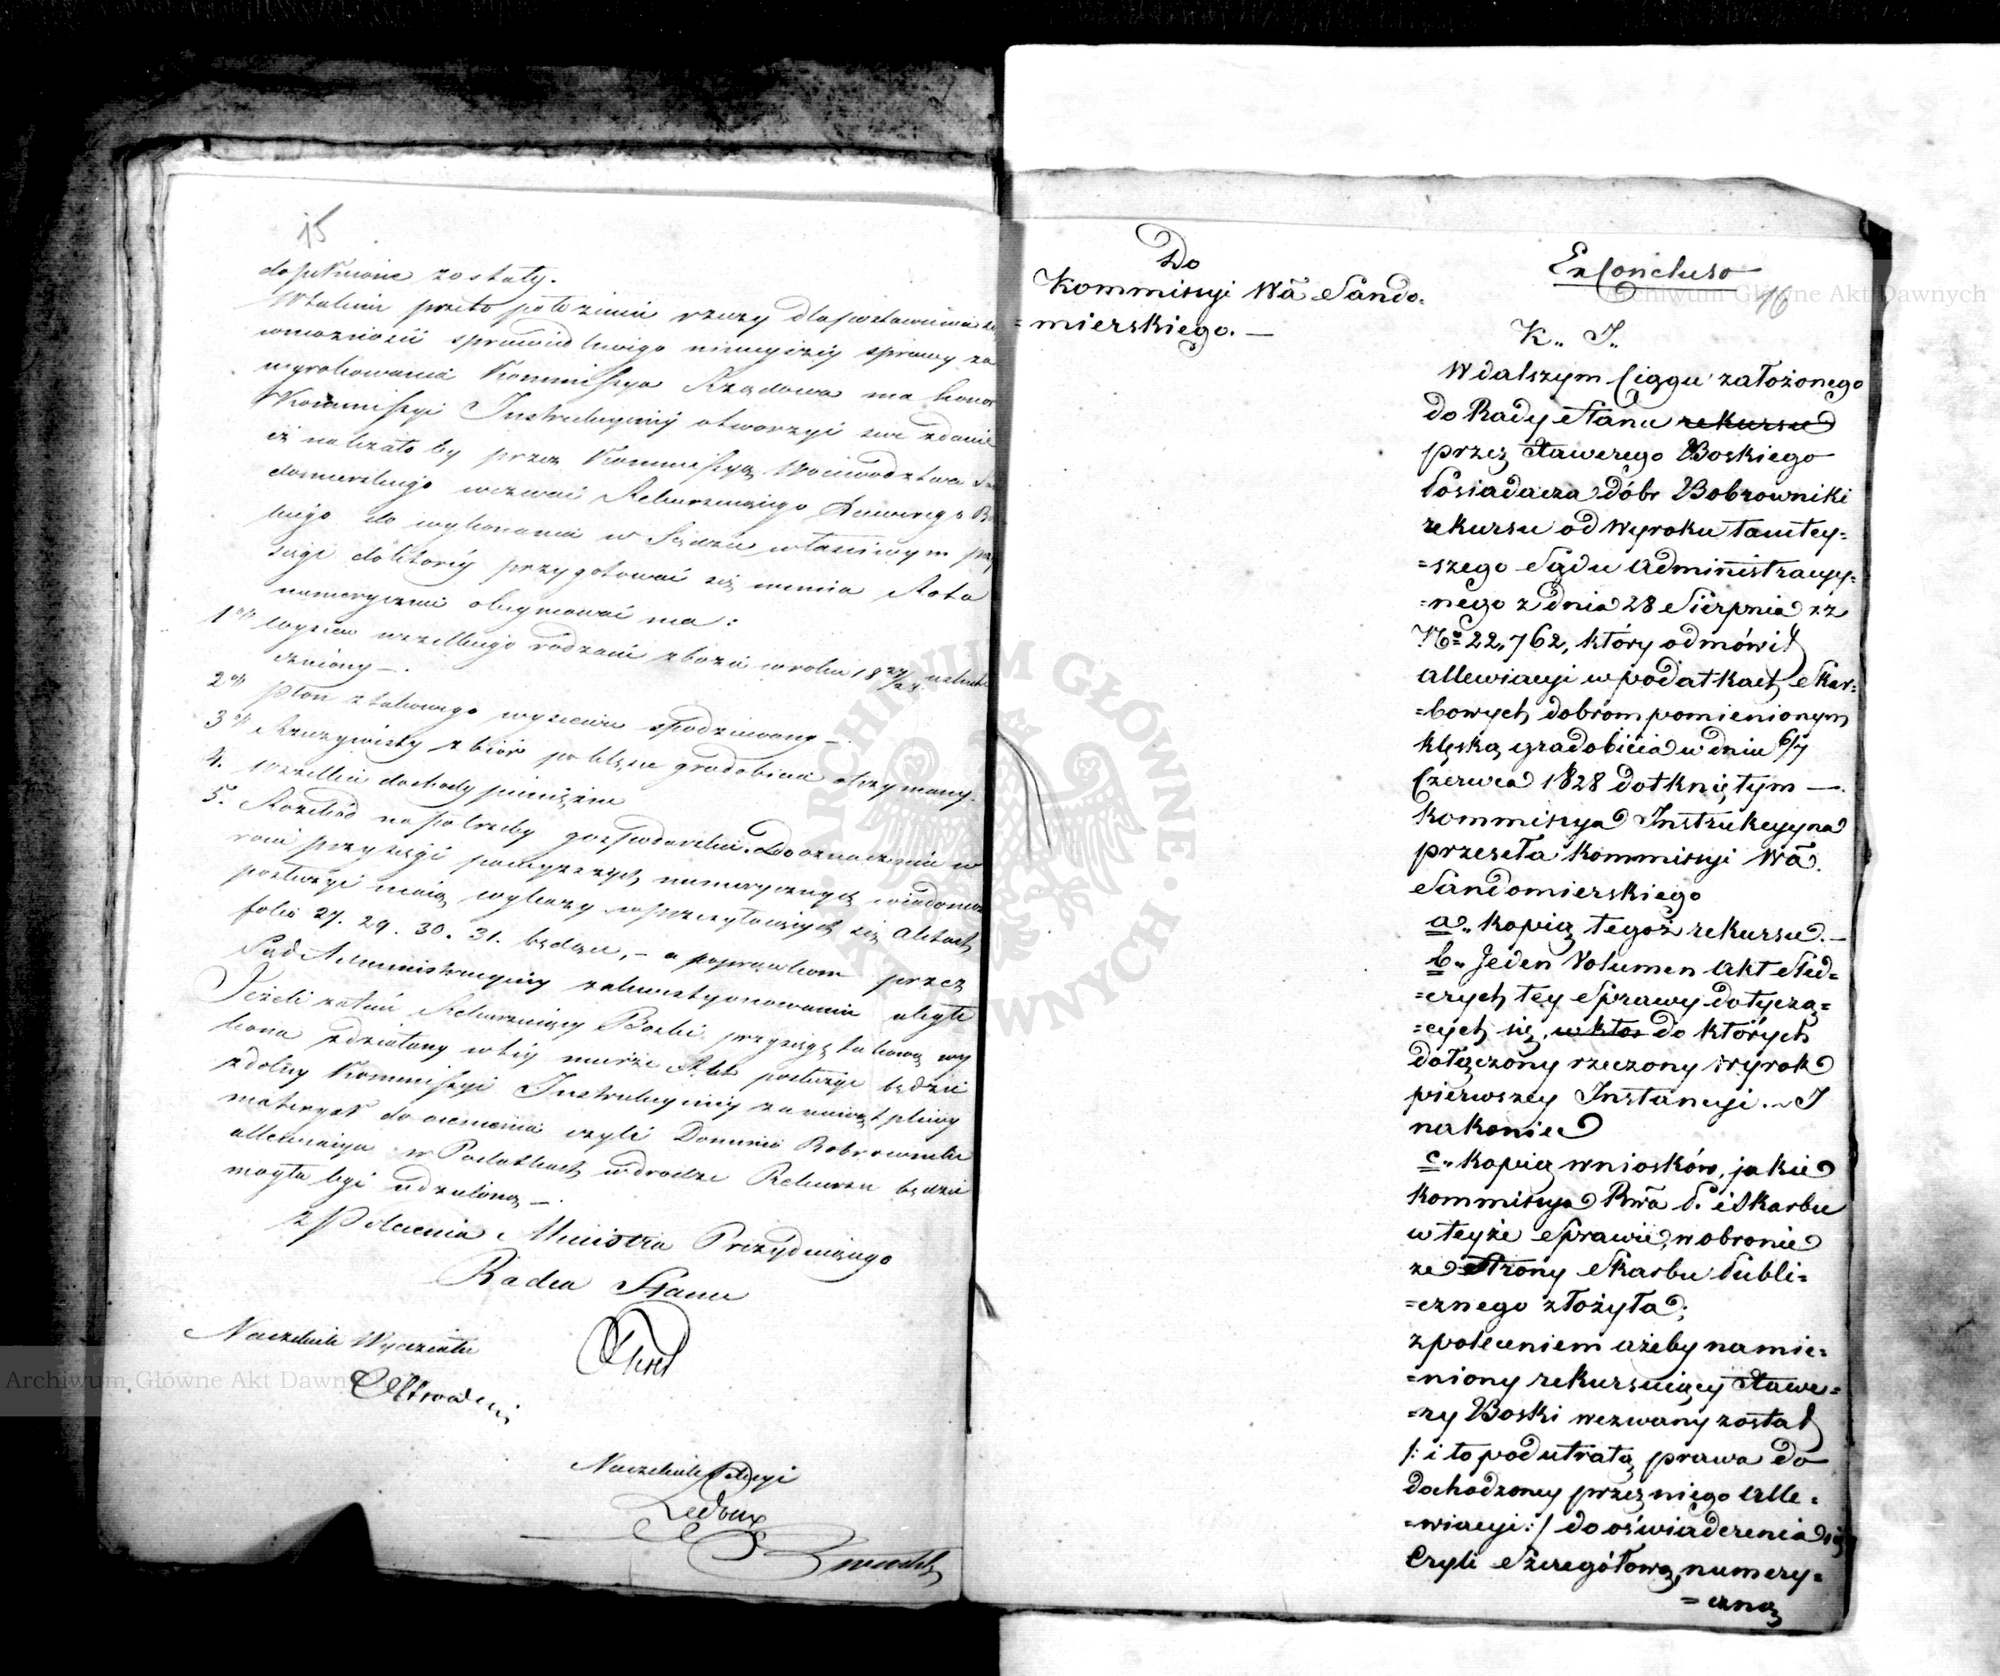 15
dopełnione zostały.
W takim przeto położeniu rzeczy dla postawienia
w możności sprawiedliwego ninieyszey sprawy za
wyrokowania Kommissya Rządowa ma honor
Kommissyi Instrukcyiney otworzyć swe zdanie
iż należało by przez Kommissyą Woiewodztwa San
domierskiego wezwać Rekuruiącego Xawerego Bo
skiego do wykonania w Sądzie właściwym przy
sięgi do którey przygotować się winna Rota
numerycznie obeymować ma:
1od wysiew wszelkiego rodzaiu zboża w roku 18 27/28
czniony —.
2od Plon z takowego wysiewu spodziewany —.
3od Rzeczywisty zbiór po klęsce gradobicia otrzymany.
4. wszelkie dochody pieniężne
5. Rozchód na potrzeby gospodarskie. Do oznaczenia w
rocie przysięgi powyższych numerycznych wiadomości
posłużyć maią wykazy w przyłączaiących się Aktach
folio 27. 29. 30. 31. będące, — a poprawkom przez
Sąd Administracyiny zakwestyonowania uległe
Jeżeli zatem Rekuruiący Boski przysięgę takową wy
kona zdziałany w tey mierze Akt posłuży będzie
zdolny Kommissyi Instrukcyiney za niewątpliwy
materyał do ocenienia czyli Dominio Bobrowniki
allewiacya w Podatkach w drodze Rekursu będzie
mogła być udzieloną —.
z Polecenia Ministra Prezyduiącego
Radca Stanu
Naczelnik Wydziału
Naczelnik Sekcyi
Ledoux
Do
Kommissyi Wa Sando-
=mierskiego. —
Ex Concluso
16
K„ I„
W dalszym Ciągu założonego
do Rady Stanu rekursu
przez Xawerego Boskiego
Posiadacza dóbr Bobrowniki
rekursu od Wyroku tamtey=
=szego Sądu Administracyy=
=nego z dnia 28 Sierpnia rz
No 22,762, który odmówił
allewiacyi w podatkach Skar=
=bowych dobrom pomienionym
klęską gradobicia w dniu 6/7
Czerwca 1828 dotkniętym —.
Kommissya Instrukcyyna
przeseła Kommissyi Wa.
Sandomierskiego
a„ kopią tegoż rekursu. —
b„ Jeden Volumen Akt Śled=
=czych tey Sprawy dotyczą=
=cych się, w któr do których
dołączony rzeczony wyrok
pierwszey Instancyi. — I
na koniec
c„ kopią wniosków, jakie
Kommissya Rwa P. i Skarbu
w teyże Sprawie, w obronie
ze Strony Skarbu Publi=
=cznego złożyła;
z poleceniem ażeby namie=
=niony rekursuiący Xawe=
=ry Boski wezwany został
/: i to pod utratą prawa do
dochodzoney przez niego Alle=
=wiacyi :/ do oświadczenia się
Czyli Szczegółową, numery=
=czną